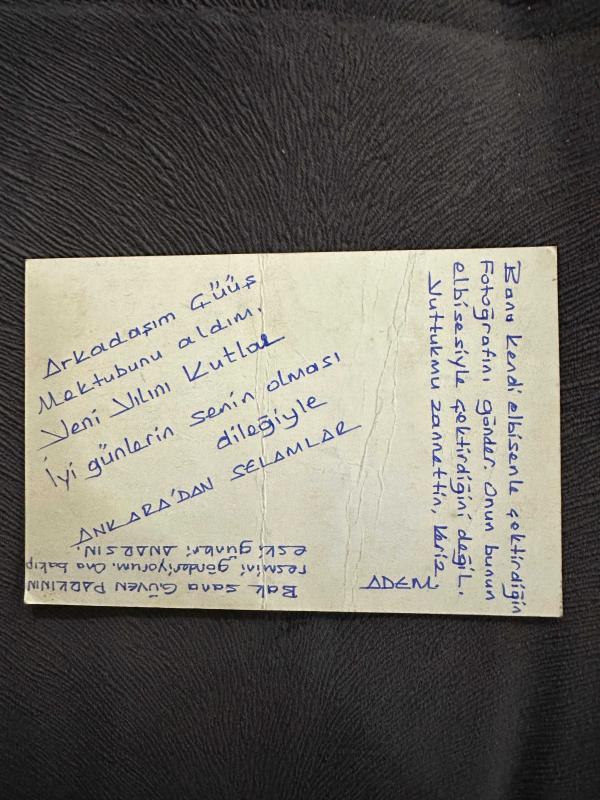 Arkadaşım Güüş
Mektubunu aldım.
Yeni Yılını Kutlar
İyi günlerin senin olması
dileğiyle
ANKARA'DAN SELAMLAR
Bana kendi elbisenle çektirdiğin
Fotoğrafını gönder. Onun bunun
elbisesiyle çektirdiğini değil.
Yuttukmu zannettin,
ADEM
Bak sana GÜVEN PARKININ
resmini gönderiyorum. Ona bakıp
eski günleri ANARSIN.